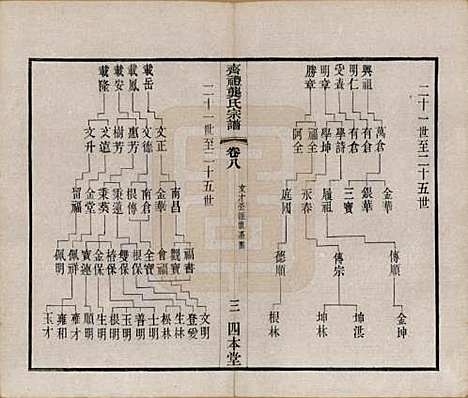 二十一世至二十五世
興祖 明仁 受資 明章 勝章
萬倉 有倉 有倉 學詩 學坤 福全 阿全
金華 銀華 三寶 履福 永春 庭國
傳順 傳宗 德順
金坤 坤洪 坤林 根林
齊禮龔氏宗譜
卷八
三
四本堂
二十一世至二十五世
載岳 載鳳 載安 載隆
文正 文德 惠芳 樹芳 文遠 文升
南昌 金華 南倉 根傳 秉蓮 秉葵 金堂 留福
福書 觀寶 金福 全寶 根保 雙保 椿保 金保 寶蓮 佩福 佩明
文明 登愛 生林 松林 士明 善明 玉明 根明 生明 順明 雍才 雍和 玉才